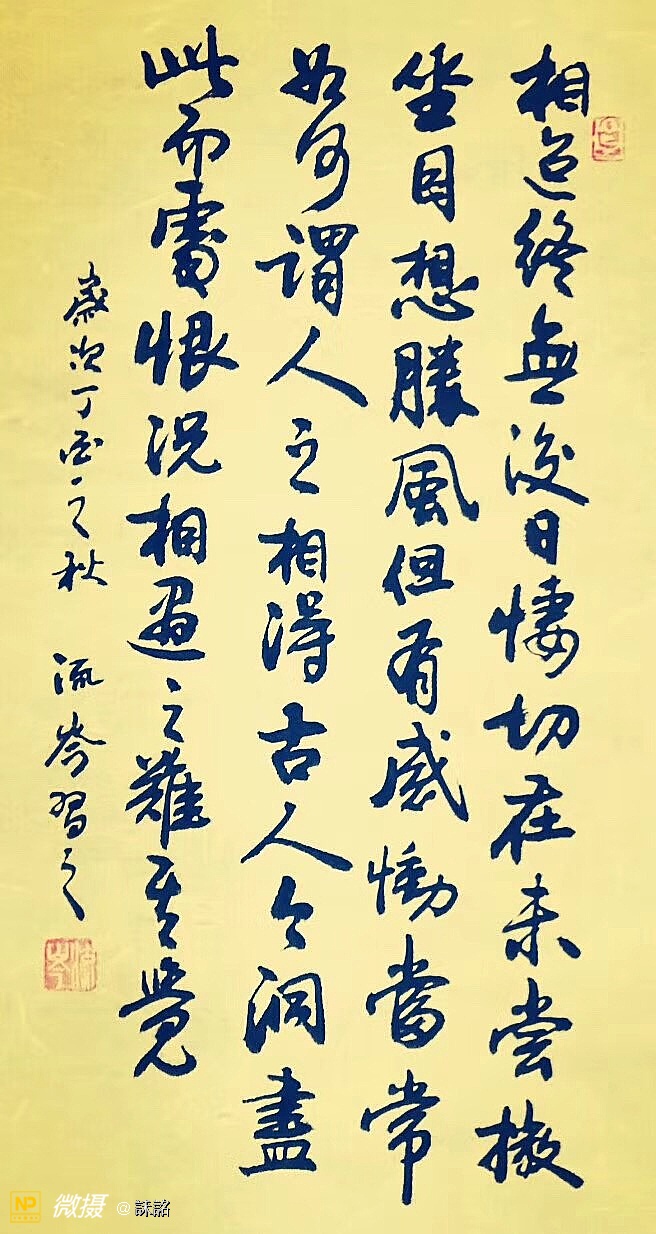 相迎終無復日悽切在未嘗撥
坐目想勝風但有感慟當常
如何謂人之相得古人今洞盡
此而處恨況相遇之難覺
歲次丁酉之秋 流岑習之
NP 微摄 @誅詺